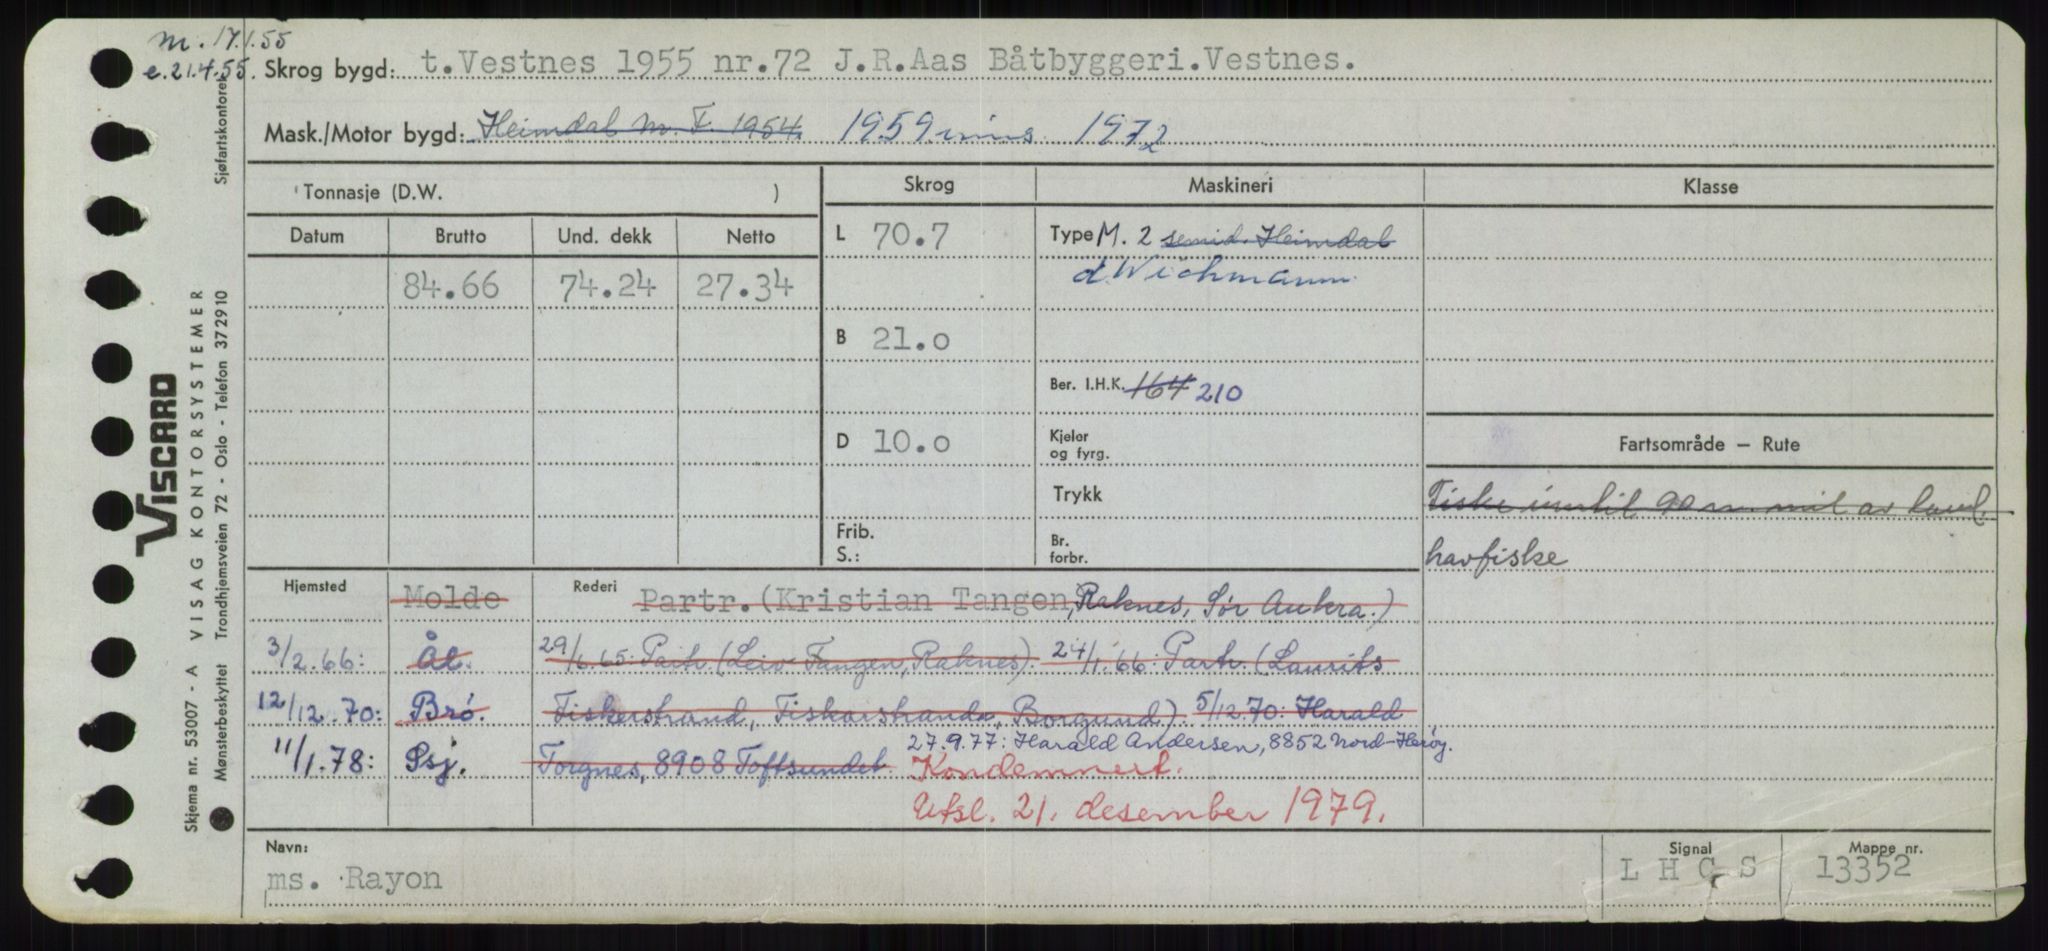 m. 17.1.55
e. 21.4.55.
Skrog bygd: t.Vestnes 1955 nr.72 J.R.Aas Båtbyggeri.Vestnes.
Mask./Motor bygd: Heimdal M.F. 1954. 1959 inns 1972
Tonnasje (D.W. )
Skrog Maskineri Klasse
Datum Brutto Und. dekk Netto
L 70.7 Type M. 2 semid. Heimdal
d Wichmann
84.66 74.24 27.34
B 21.0
Ber. I.H.K. 164 210
D 10.0 Kjeler og fyrg.
Fartsområde — Rute
Trykk
Fiske inntil 90 n. mil av land.
Frib.
S.:
Br. forbr.
havfiske
Hjemsted Molde Rederi Partr.(Kristian Tangen, Raknes, Sør Aukra.)
3/2.66: Ål. 29/6.65: Partr. (Leiv Tangen, Raknes). 24/1.66: Partr. (Laurits
12/12.70: Brø. Fiskerstrand, Fiskarstranda, Borgund) 5/12.70: Harald
27.9.77: Harald Andersen, 8852 Nord-Herøy.
11/1.78: Psj. Torgnes, 8908 Toftsundet Kondemnert.
Utsl. 21. desember 1979.
Navn: ms. Rayon
Signal L H C S
Mappe nr. 13352
VISCARD
Skjema nr. 53007 - A VISAG KONTORSYSTEMER
Mønsterbeskyttet Trondhjemsveien 72 - Oslo - Telefon 372910
Sjøfartskontoret